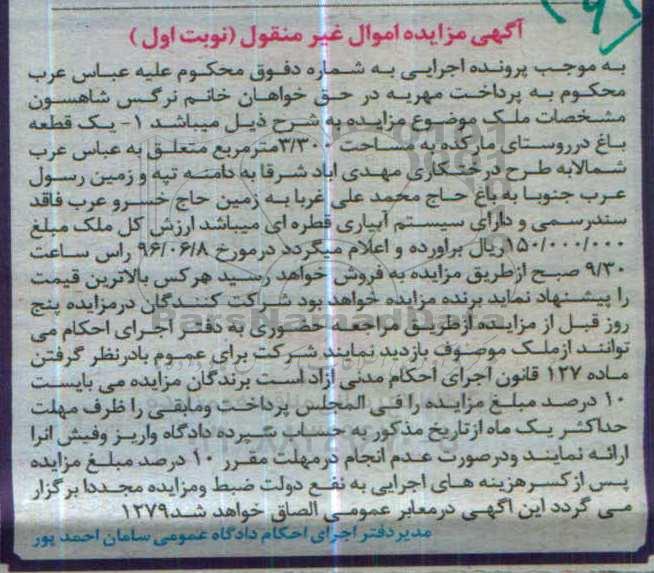 آگهی مزایده اموال غیر منقول (نوبت اول)
به موجب پرونده اجرایی به شماره دفوق محکوم علیه عباس عرب
محکوم به پرداخت مهریه در حق خواهان خانم نرگس شاهسون
مشخصات ملک موضوع مزایده به شرح ذیل میباشد ۱- یک قطعه
باغ درروستای مارکده به مساحت ۳/۳۰۰مترمربع متعلق به عباس عرب
شمالابه طرح درختکاری مهدی اباد شرقا به دامنه تپه و زمین رسول
عرب جنوبا به باغ حاج محمد علی غربا به زمین حاج خسرو عرب فاقد
سندرسمی و دارای سیستم آبیاری قطره ای میباشد ارزش کل ملک مبلغ
۱۵۰/۰۰۰/۰۰۰ریال براورده و اعلام میگردد درمورخ ۹۶/۰۶/۸ راس ساعت
۹/۳۰ صبح ازطریق مزایده به فروش خواهد رسید هرکس بالاترین قیمت
را پیشنهاد نماید برنده مزایده خواهد بود شراکت کنندگان درمزایده پنج
روز قبل از مزایده ازطریق مراجعه حضوری به دفتر اجرای احکام می
توانند ازملک موصوف بازدید نمایند شرکت برای عموم بادرنظر گرفتن
ماده ۱۲۷ قانون اجرای احکام مدنی ازاد است برندگان مزایده می بایست
۱۰ درصد مبلغ مزایده را فی المجلس پرداخت ومابقی را ظرف مهلت
حداکثر یک ماه ازتاریخ مذکور به حساب سپرده دادگاه واریز وفیش انرا
ارائه نمایند ودرصورت عدم انجام درمهلت مقرر ۱۰ درصد مبلغ مزایده
پس ازکسرهزینه های اجرایی به نفع دولت ضبط ومزایده مجددا برگزار
می گردد این اگهی درمعابر عمومی الصاق خواهد شد۱۲۷۹
مدیردفتر اجرای احکام دادگاه عمومی سامان احمد پور
ParsNamadData